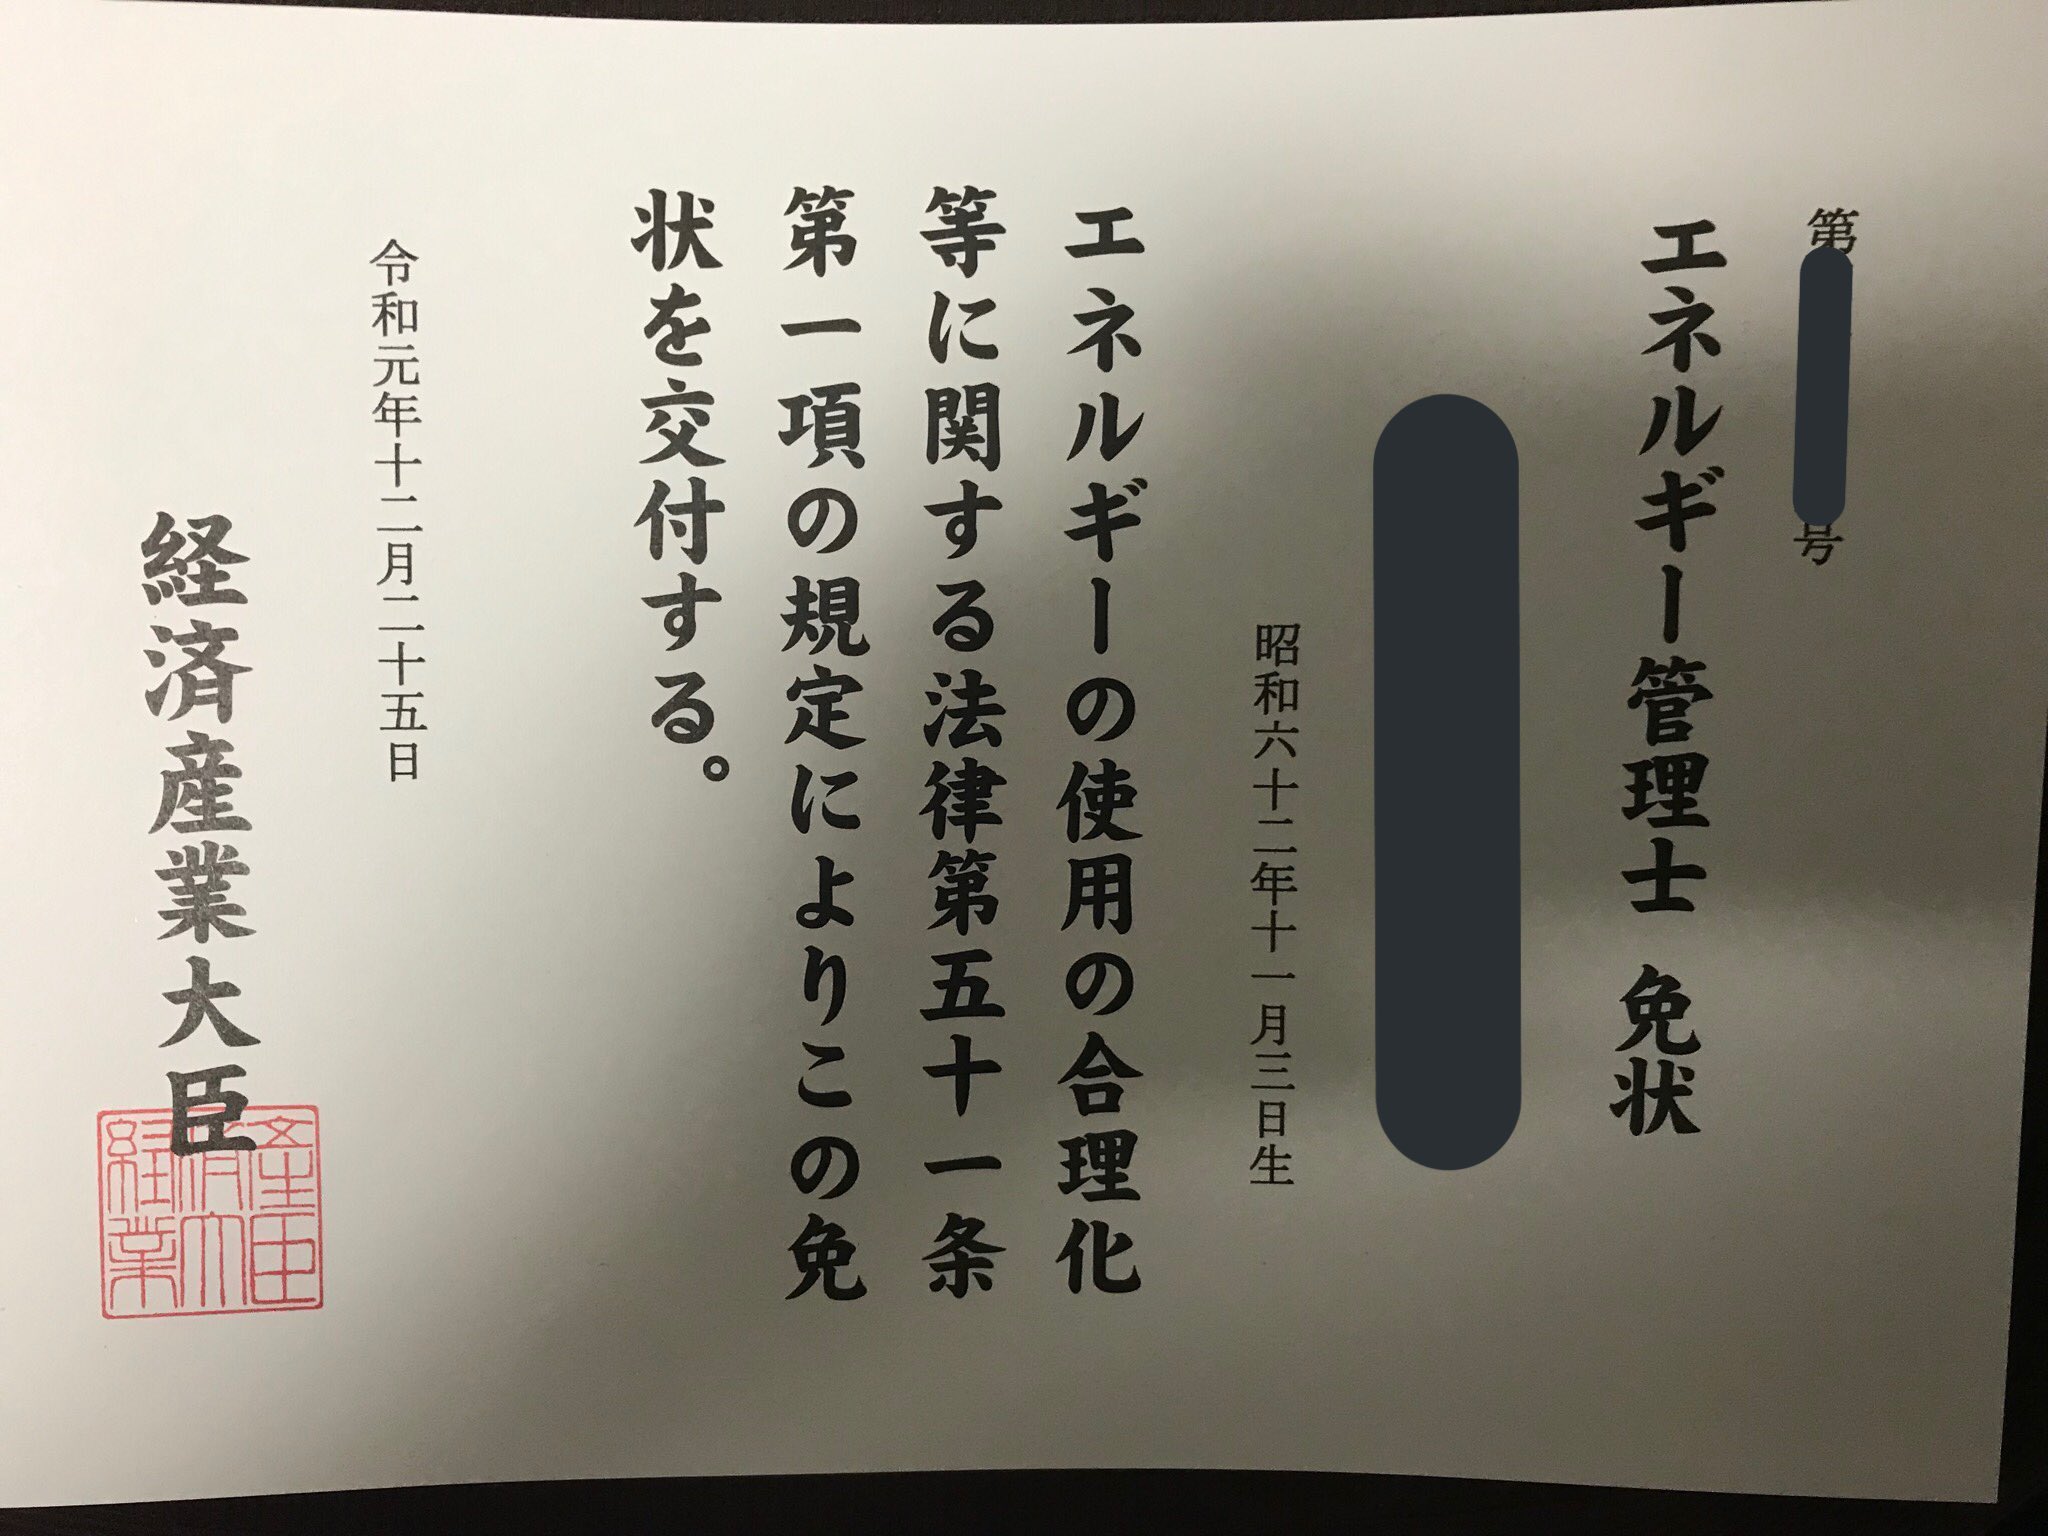 第 号
エネルギー管理士 免状
昭和六十二年十一月三日生
エネルギーの使用の合理化
等に関する法律第五十一条
第一項の規定によりこの免
状を交付する。
令和元年十二月二十五日
経済産業大臣